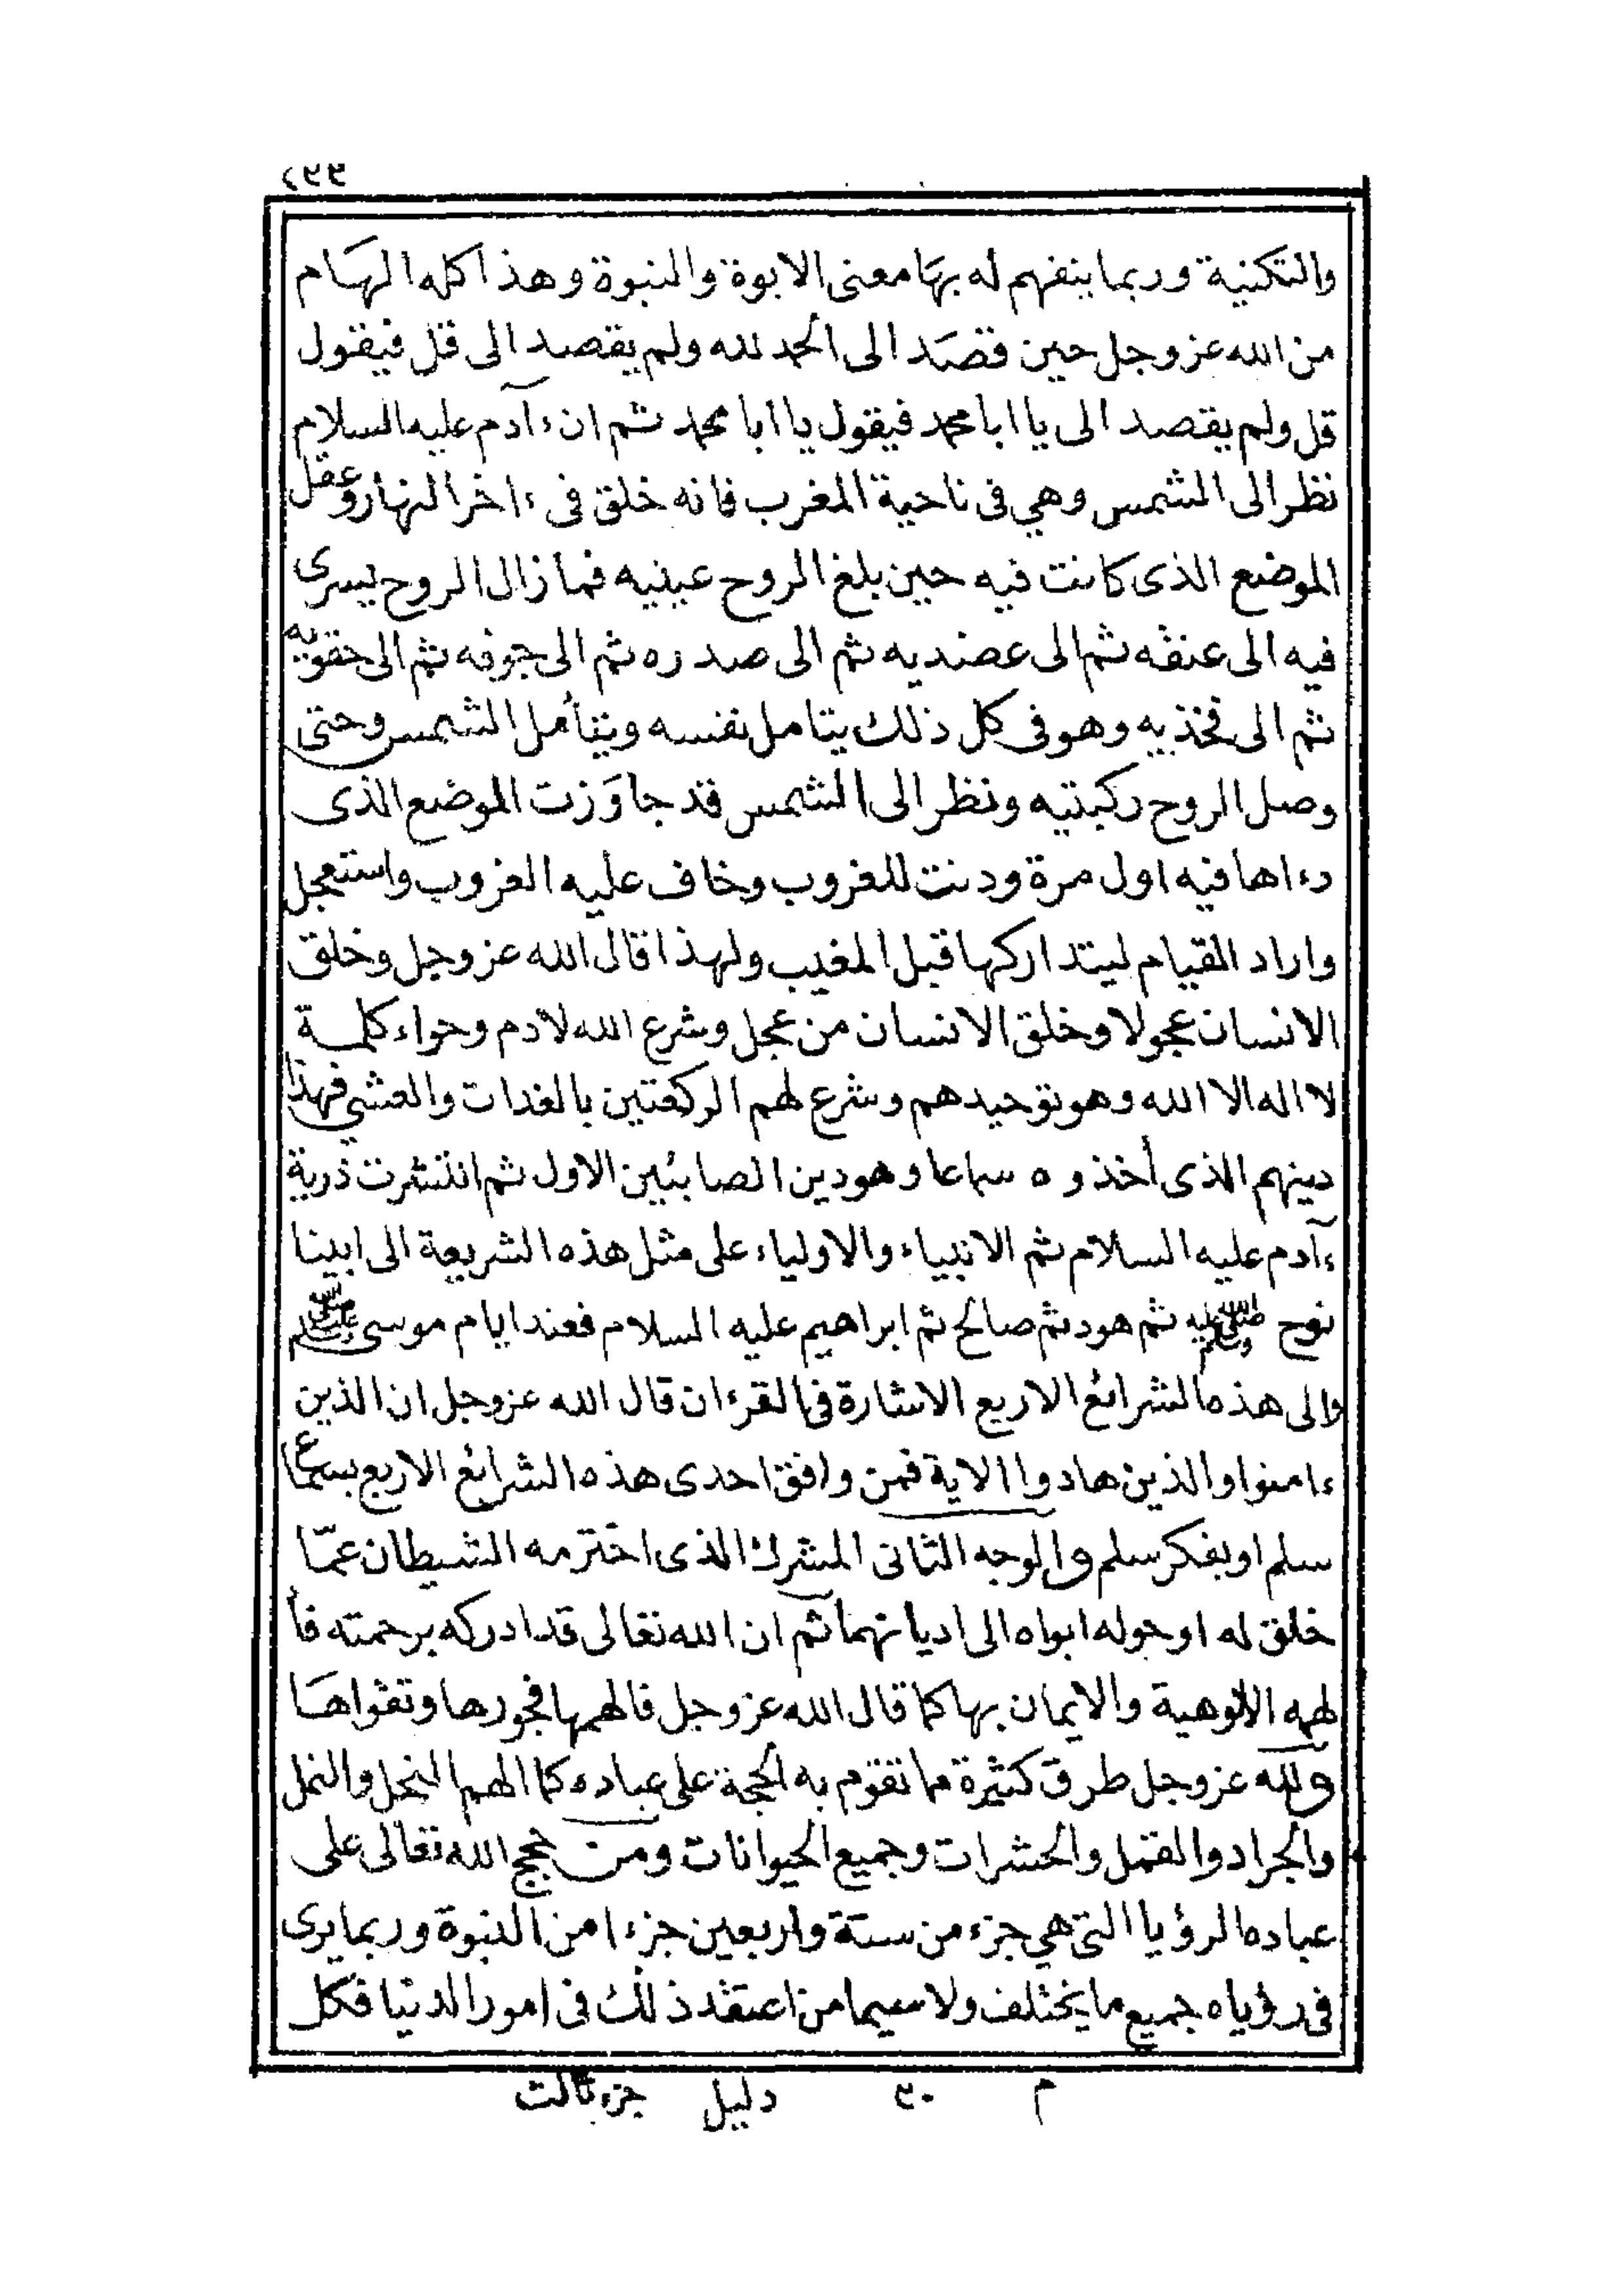 ٢٣٣
والتكنية وربما يتفهم له بها معنى الابوة والنبوة وهذا كله الهام
من الله عز وجل حين قصد الى الحمد لله ولم يقصد الى قل فيقول
قل ولم يقصد الى يا ابا محمد فيقول يا ابا محمد ثم ان ءآدم عليه السلام
نظر الى الشمس وهي فى ناحية المغرب فانه خلق فى ءاخر النهار وعقل
الموضع الذى كانت فيه حين بلغ الروح عينيه فما زال الروح يسرى
فيه الى عنقه ثم الى عضديه ثم الى صدره ثم الى جوفه ثم الى حقويه
ثم الى فخذيه وهو فى كل ذلك يتامل نفسه ويتأمل الشمس وحتى
وصل الروح ركبتيه ونظر الى الشمس قد جاوَزت الموضع الذى
رءاها فيه اول مرة ودنت للغروب وخاف عليه الغروب واستعجل
واراد القيام ليتداركها قبل المغيب ولهذا قال الله عز وجل وخلق
الانسان عجولا وخلق الانسان من عجل وشرع الله لادم وحواء كلمة
لا اله الا الله وهو توحيدهم وشرع لهم الركعتين بالغدات والعشي فهذا
دينهم الذى أخذوه سماعا وهو دين الصابئين الاول ثم انتشرت ذرية
ءآدم عليه السلام ثم الانبياء والاولياء على مثل هذه الشريعة الى ابينا
نوح صلى الله عليه وسلم ثم هود ثم صالح ثم ابراهيم عليه السلام فعند ايام موسى صلى الله عليه وسلم
والى هذه الشرائع الاربع الاشارة فى القرءان قال الله عز وجل ان الذين
ءامنوا والذين هادوا الاية فمن وافق احدى هذه الشرائع الاربع بسماع
سلم او بفكر سلم والوجه الثانى المشرك الذى اخترمه الشيطان عمّا
خلق له او حوله ابواه الى اديانهما ثم ان الله تعالى قد ادركه برحمته فأ
لهمه الالوهية والايمان بها كما قال الله عز وجل فالهمها فجورها وتقواها
ولله عز وجل طرق كثيرة مما تقوم به الحجة على عباده كما الهم النحل والنمل
والجراد والقمل والحشرات وجميع الحيوانات ومن حجج الله تعالى على
عباده الرؤيا التى هي جزء من ستة واربعين جزءا من النبوة وربما يرى
فى رؤياه جميع ما يختلف ولا سيما من اعتقد ذلك فى امور الدنيا فكل
م ٣٠ دليل جزء ثالث